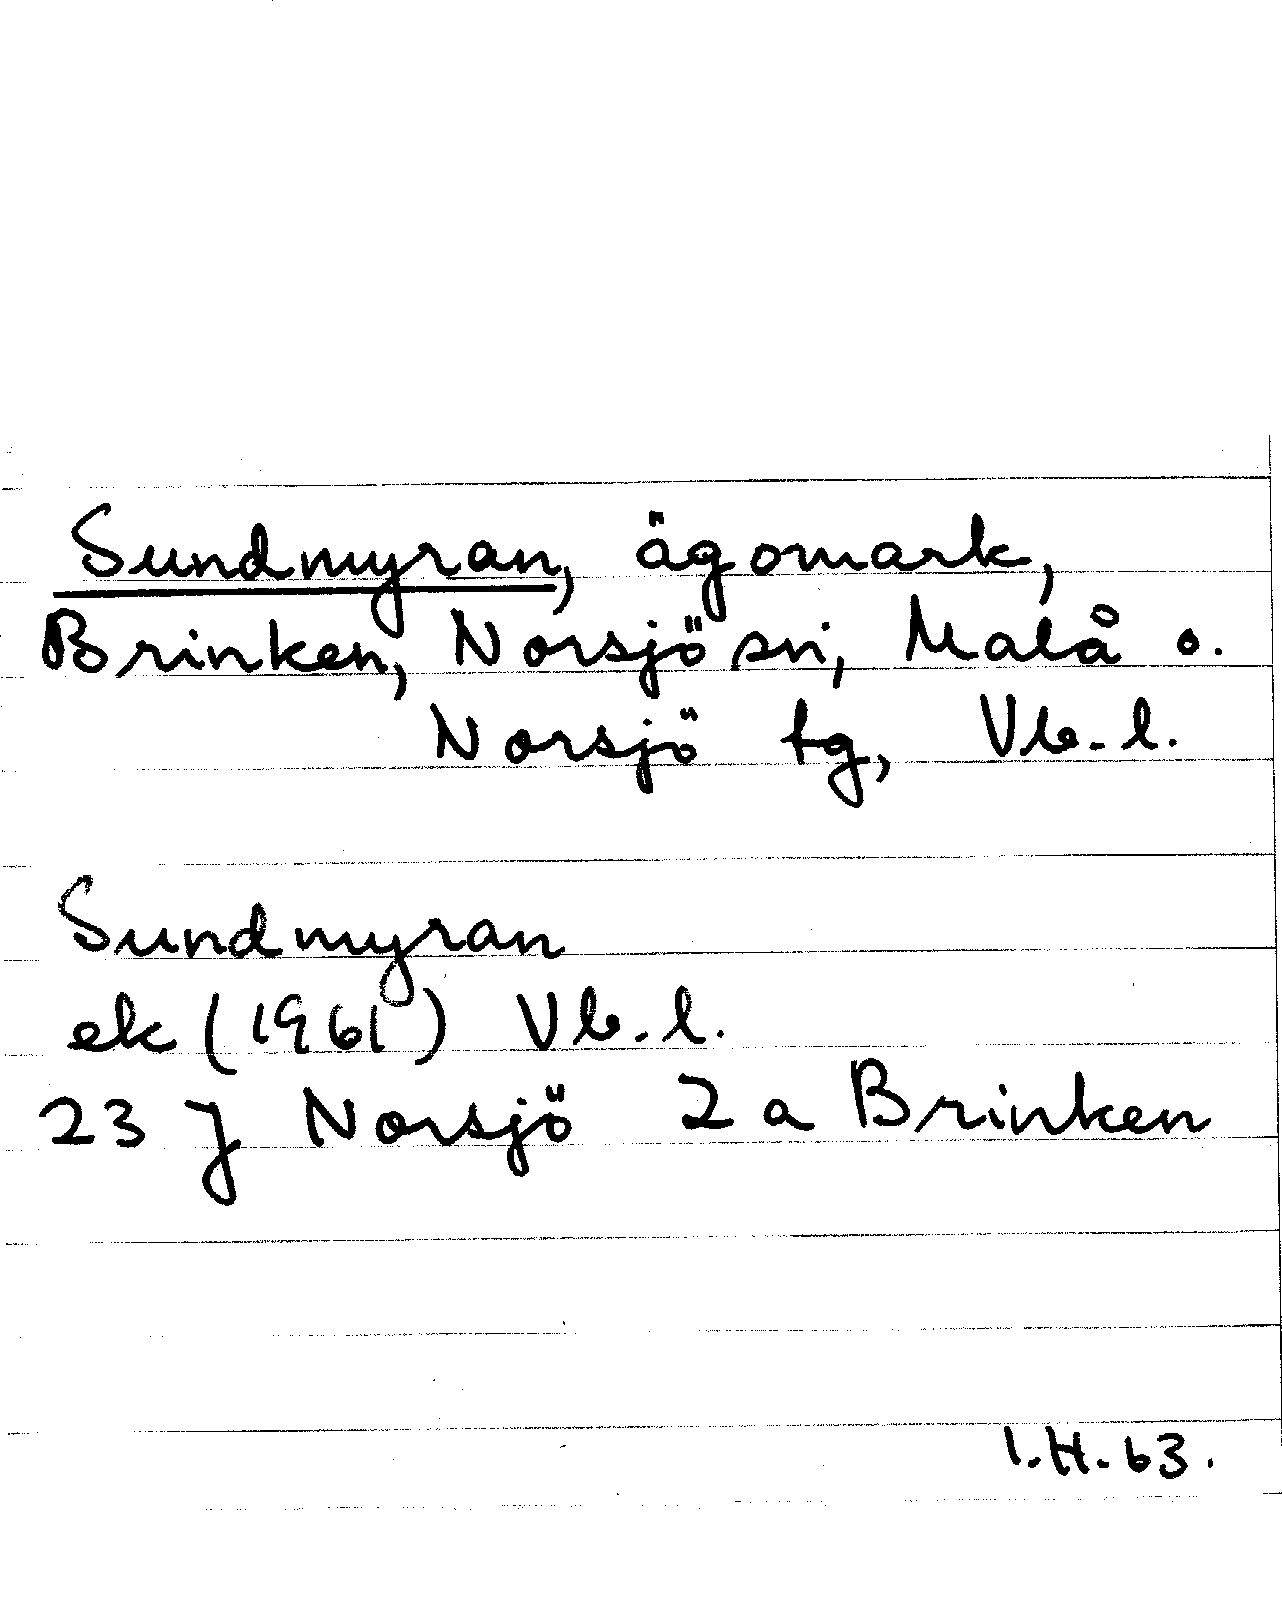 Sundmyran, ägomark,
Brinken, Norsjö sn, Malå o.
Norsjö tg, Vb. l.
Sundmyran
ek (1961) Vb. l.
23 J Norsjö 2a Brinken
I.H. 63.